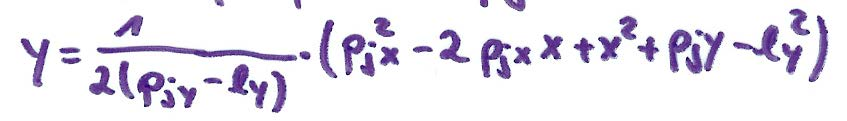 y = \frac{1}{2(p_{jy} - l_y)} \cdot (p_{jx}^2 - 2 p_{jx} x + x^2 + p_{jy} - l_y^2)